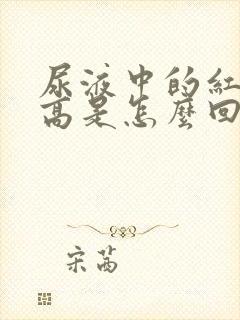 尿液中的紅
高是怎麼回
宋茜